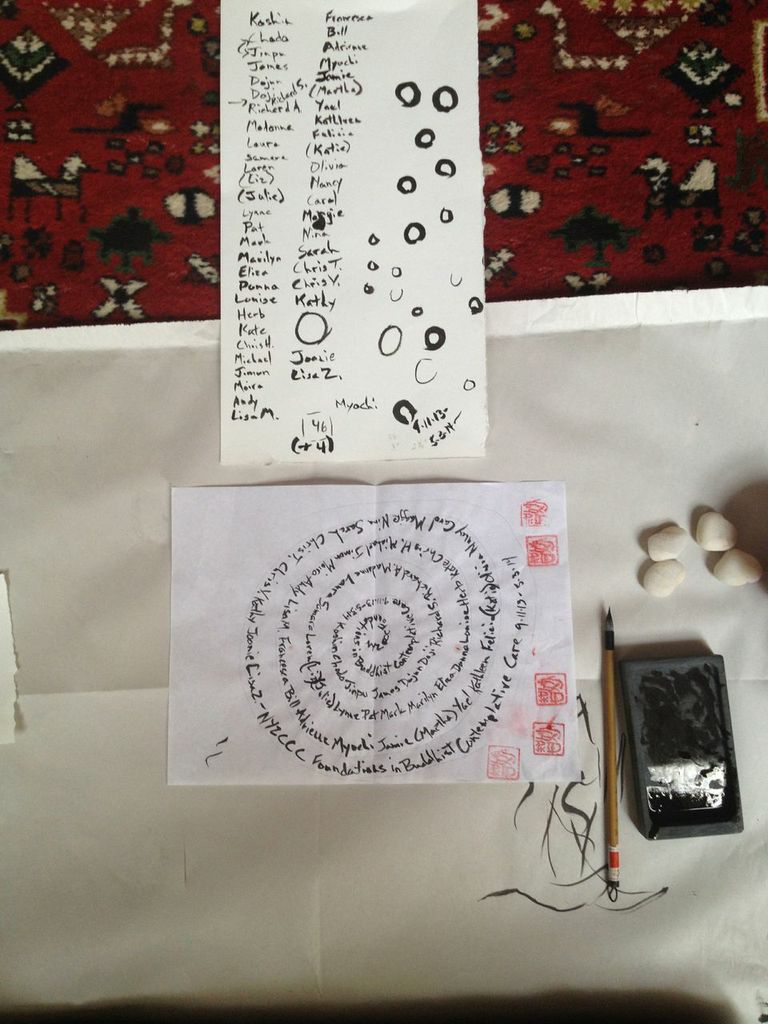 Koshin
Chodo
Jinpu
James
Dojun
Richard S.
Richard A.
Madonna
Laura
Samara
Loren
(Liz)
(Julie)
Lynne
Pat
Mark
Marilyn
Elisa
Donna
Louise
Herb
Kate
Chris H.
Michael
Simon
Moira
Andy
Lisa M.
Francesca
Bill
Adrienne
Myochi
Jamie
(Martha)
Yael
Kathleen
Felicia
(Katie)
Olivia
Nancy
Carol
Maggie
Nina
Sarah
Chris T.
Chris Y.
Kathy
Joanie
Lisa Z.
Myochi
46
(+4)
9.11.13-
5.3.14
Foundations in Buddhist Contemplative Care 9.11.13-5.3.14 Koshin Chodo Jinpu James Dojun Richard S. Richard A. Madonna Laura Samara Loren (Liz) (Julie) Lynne Pat Mark Marilyn Elisa Donna Louise Herb Kate Chris H. Michael Simon Moira Andy Lisa M. Francesca Bill Adrienne Myochi Jamie (Martha) Yael Kathleen Felicia (Katie) Olivia Nancy Carol Maggie Nina Sarah Chris T. Chris Y. Kathy Joanie Lisa Z. – NYZCCC Foundations in Buddhist Contemplative Care 9.11.13-5.3.14